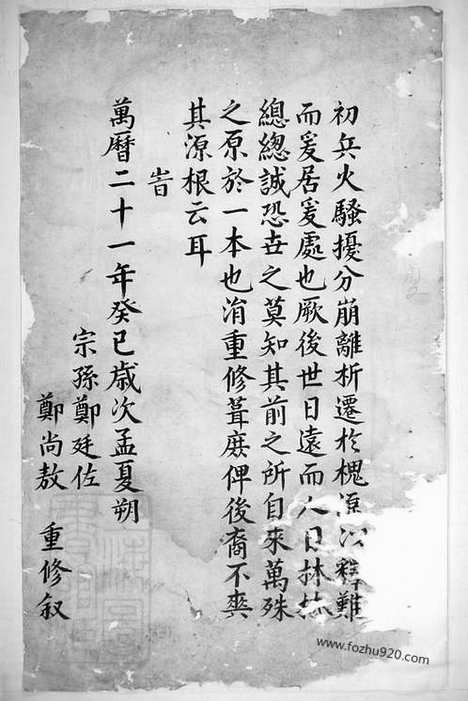 初兵火騷擾分崩離析遷於槐源以釋難
而爰居爰處也厥後世日遠而人日林林
總總誠恐世之莫知其前之所自來萬殊
之原於一本也㳙重修葺庶俾後裔不爽
其源根云耳
旹
萬曆二十一年癸巳歲次孟夏朔
宗孫鄭廷佐
鄭尚敖 重修叙
www.fozhu920.com